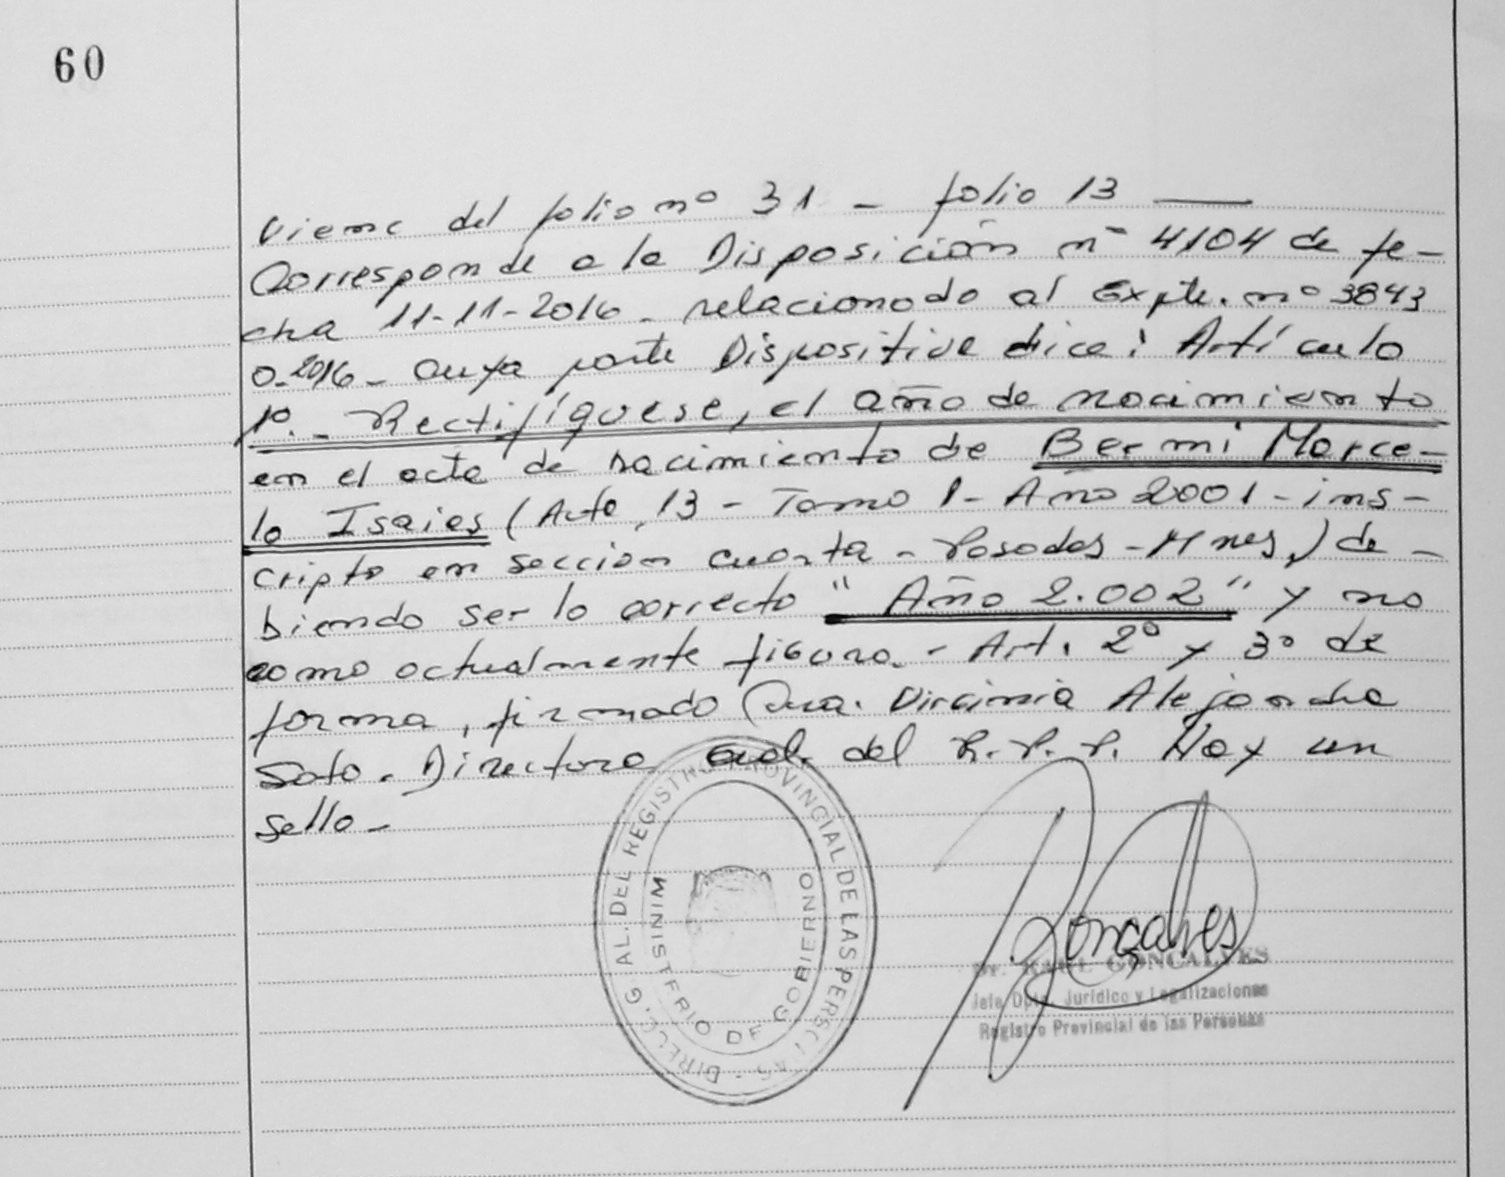 60
Viene del folio nº 31 - folio 13
Corresponde a la Disposición nº 4104 de fe-
cha 11-11-2016 - relacionado al Expte. nº 3843
0-2016 - cuya parte Dispositiva dice: Artículo
1º.- Rectifíquese, el año de nacimiento
en el acta de nacimiento de Bermi Marce-
lo Isaias (Acta 13 - Tomo 1 - Año 2001 - ins-
cripto en sección cuarta - Posadas - Mnes.) de-
biendo ser lo correcto "Año 2.002" y no
como actualmente figura. - Art. 2º y 3º de
forma, firmado Dra. Virginia Alejandra
Soto. Directora Gral. del R.P.P. Hay un
sello -
DIRECC. GRAL. DEL REGISTRO PROVINCIAL DE LAS PERSONAS
MINISTERIO DE GOBIERNO
Gonçalves
Dr. RAUL GONCALVES
Jefe Dpto. Jurídico y Legalizaciones
Registro Provincial de las Personas